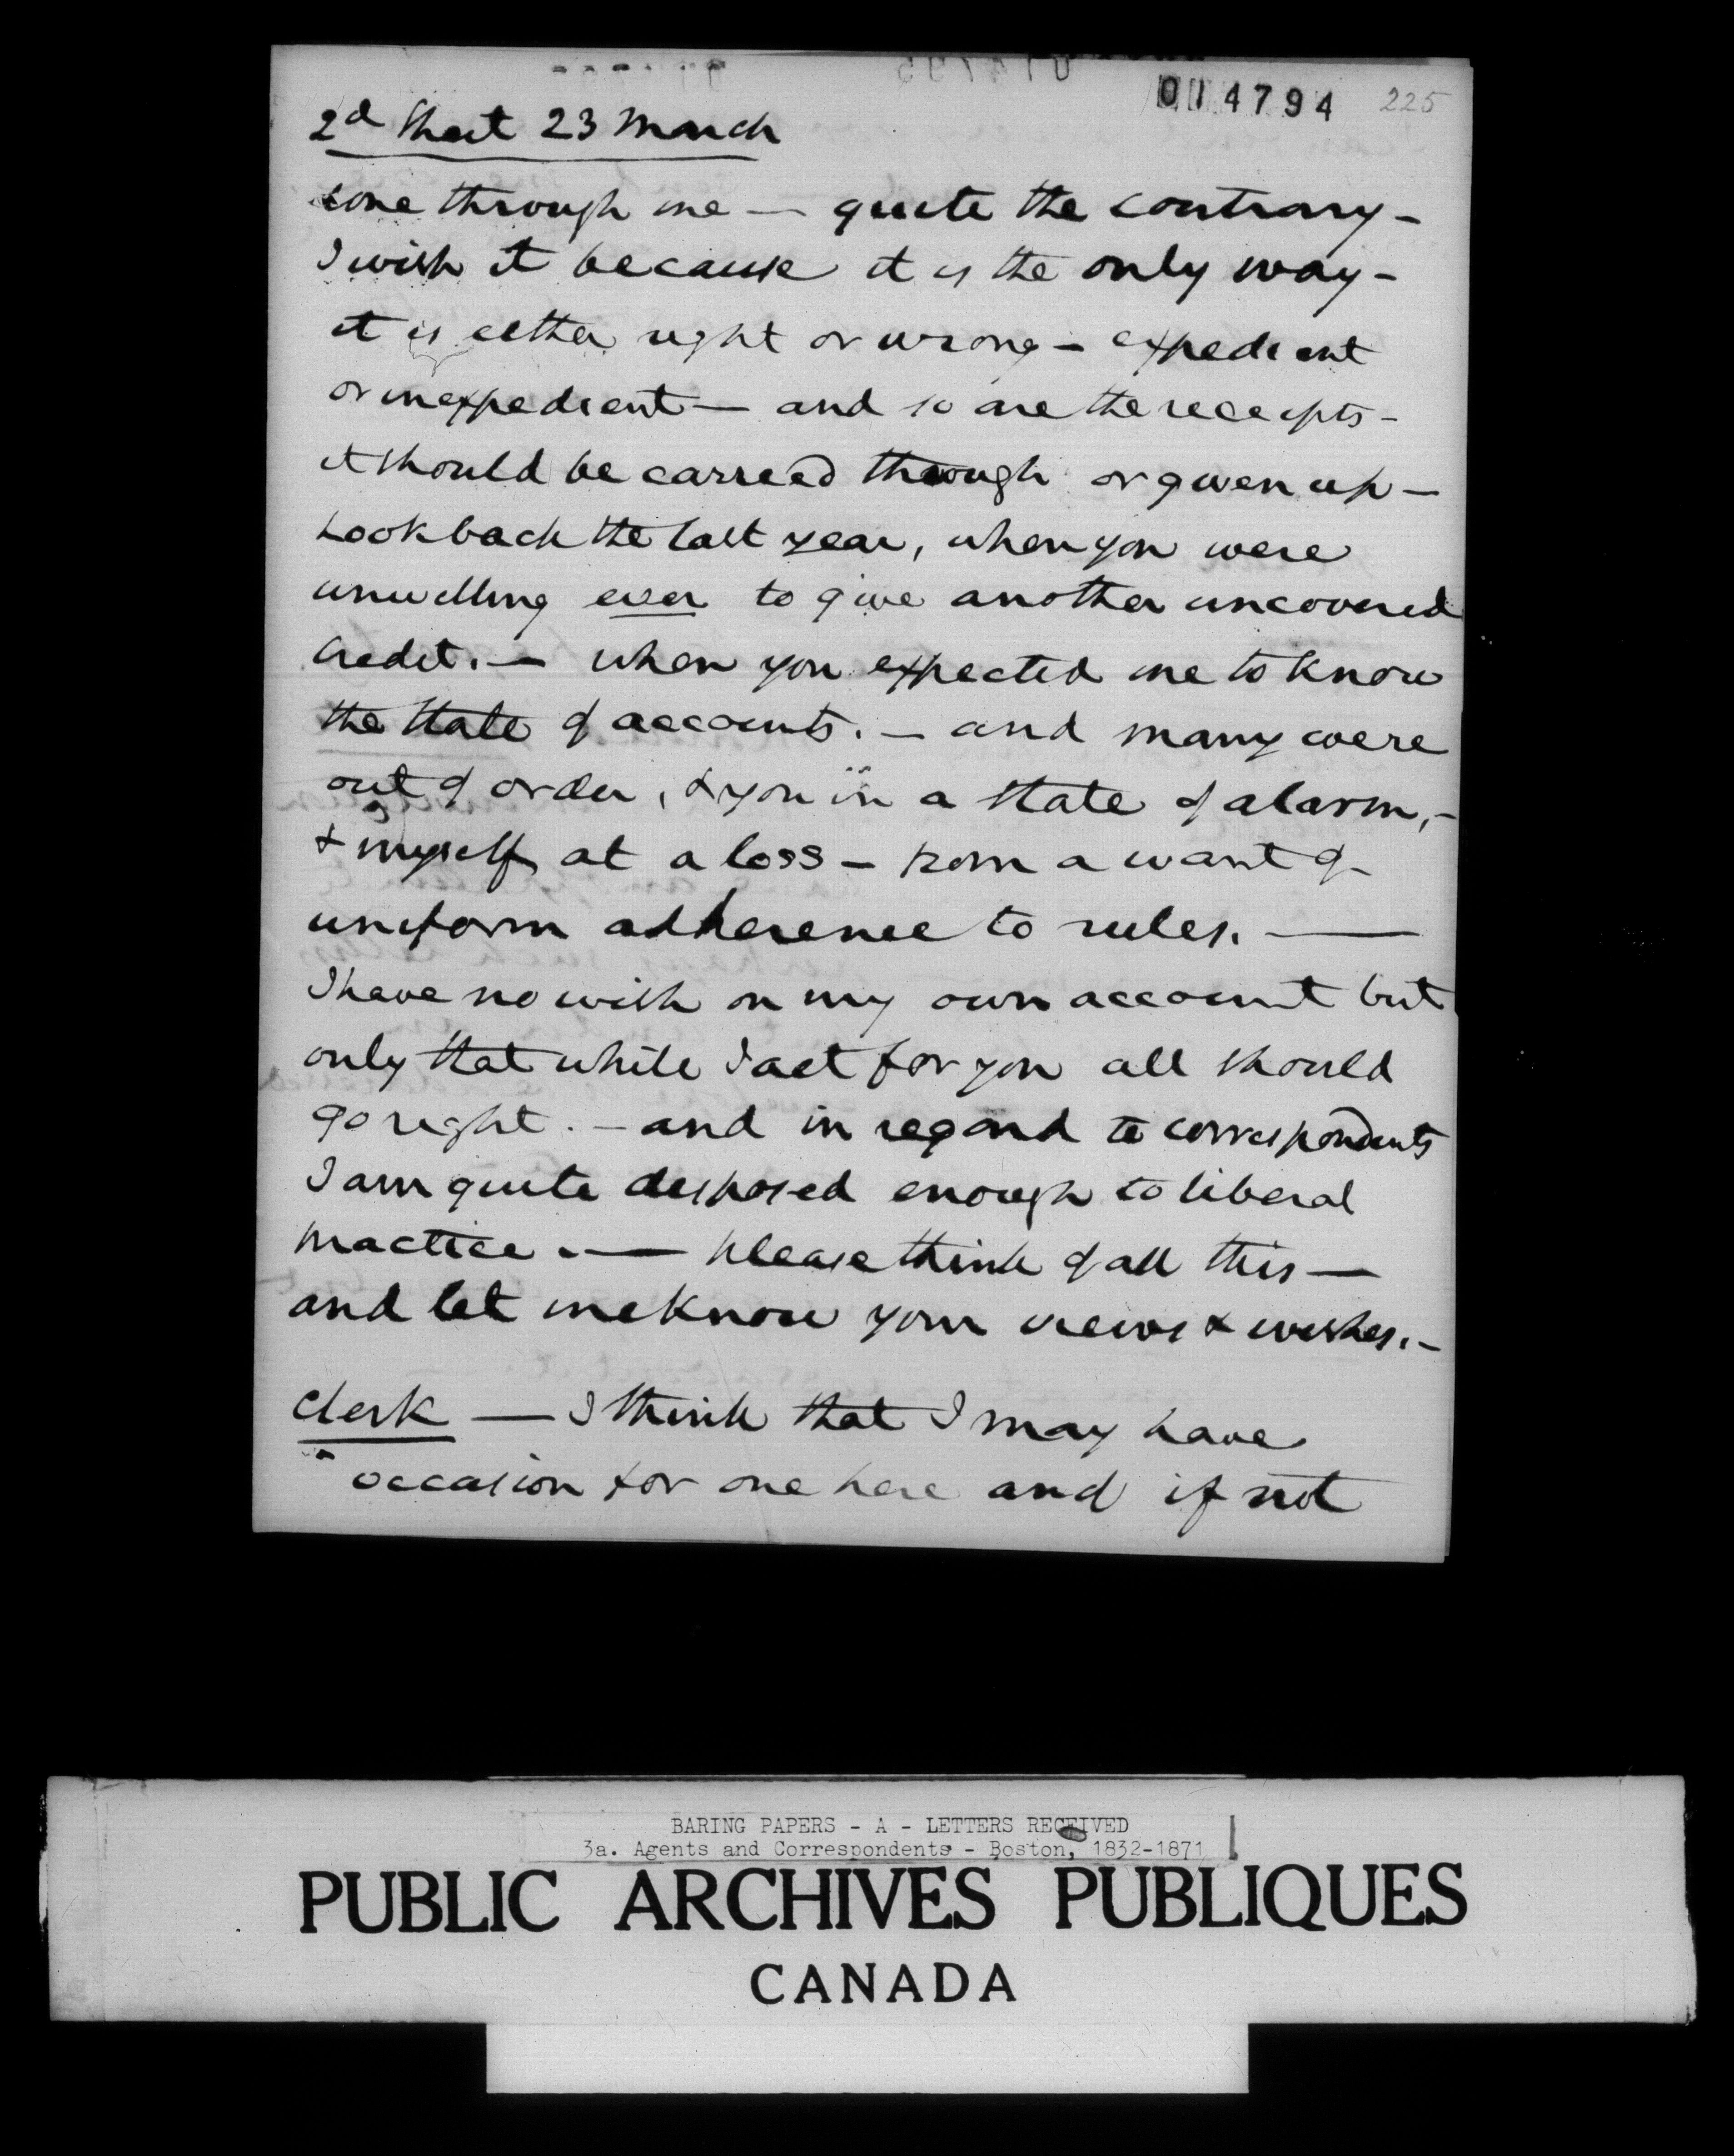 014794 225
2d Sheet 23 March
done through me — quite the contrary -
I wish it because it is the only way -
it is either right or wrong - expedient
or inexpedient — and so are the receipts -
it should be carried through or given up —
Look back the last year, when you were
unwilling ever to give another uncovered
Credit. — when you expected me to know
the state of accounts. — and many were
out of order, & you in a state of alarm, -
& myself at a loss - from a want of
uniform adherence to rules. —
I have no wish on my own account but
only that while I act for you all should
go right. — and in regard to correspondents
I am quite disposed enough to liberal
practice. — please think of all this —
and let me know your views & wishes. -
Clerk — I think that I may have
occasion for one here and if not
BARING PAPERS - A - LETTERS RECEIVED
3a. Agents and Correspondents - Boston, 1832-1871
PUBLIC ARCHIVES PUBLIQUES
CANADA